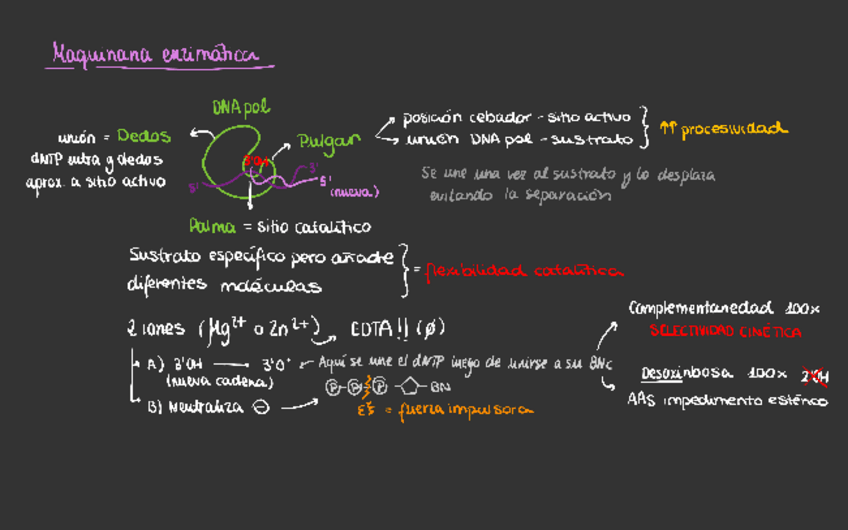 Maquinaria enzimática
DNA pol
unión = Dedos
dNTP entra y dedos
aprox. a sitio activo
Pulgar
posición cebador - sitio activo
unión DNA pol - sustrato
↑↑ procesividad
Se une una vez al sustrato y lo desplaza
evitando la separación
3'OH
3'
5'
5'
(nueva)
Palma = sitio catalítico
Sustrato específico pero añade
diferentes moléculas
= flexibilidad catalítica
2 iones (Mg2+ o Zn2+) EDTA!! (∅)
A) 3'OH → 3'O- Aquí se une el dNTP luego de unirse a su BNc
(nueva cadena)
B) Neutraliza ⊖ → P-P-P BN
= fuerza impulsora
Complementariedad 100x
SELECTIVIDAD CINÉTICA
Desoxirribosa 100x 2'OH
AAs impedimento estérico